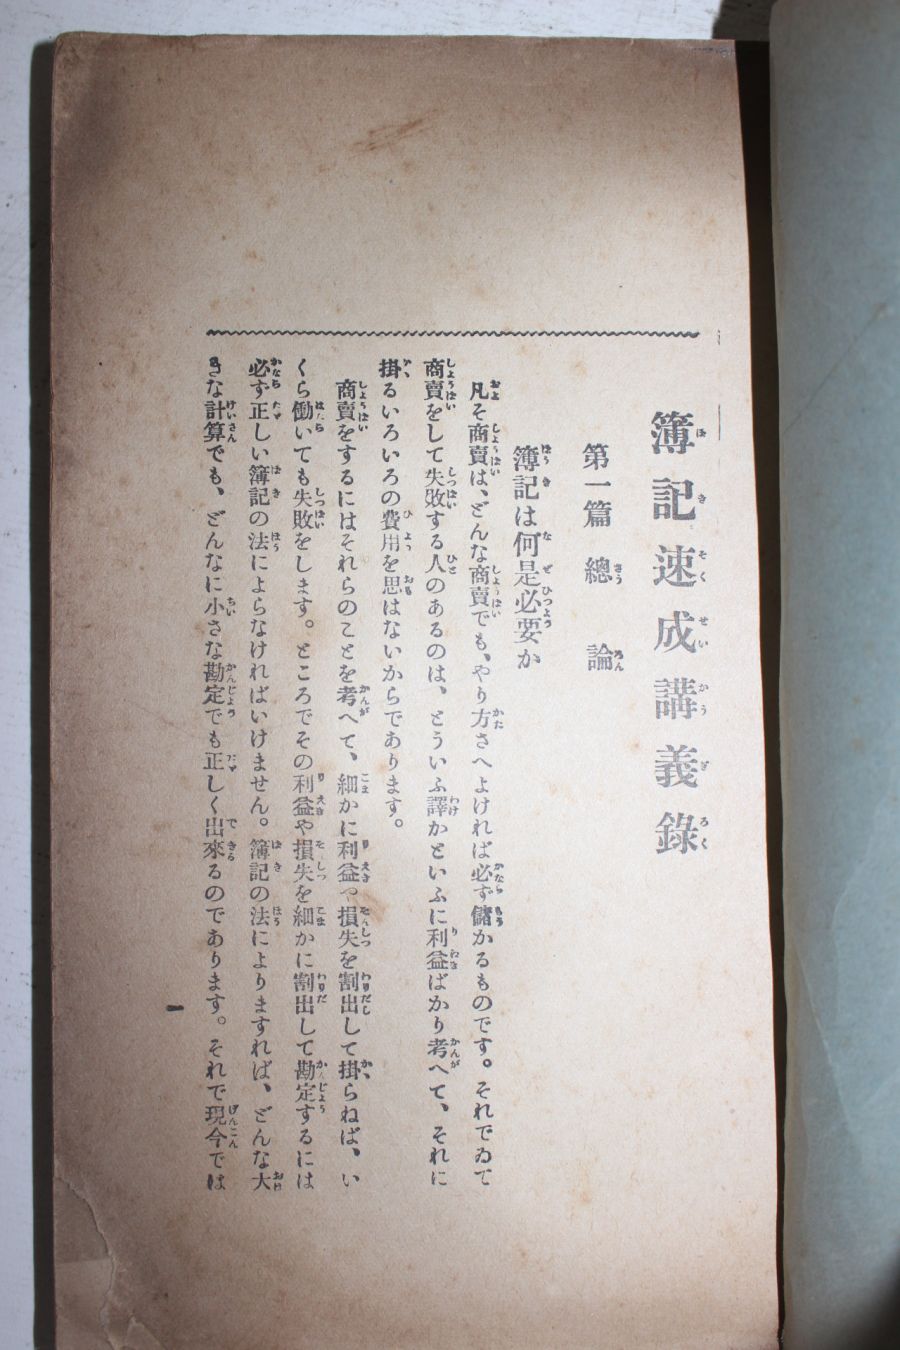 簿記速成講義錄
第一篇 總論
簿記は何是必要か
凡そ商賣は、どんな商賣でも、やり方さへよければ必ず儲かるものです。それでゐて
商賣をして失敗する人のあるのは、とういふ譯かといふに利益ばかり考へて、それに
掛るいろいろの費用を思はないからであります。
商賣をするにはそれらのことを考へて、細かに利益や損失を割出して掛らねば、い
くら働いても失敗をします。ところでその利益や損失を細かに割出して勘定するには
必ず正しい簿記の法によらなければいけません。簿記の法によりますれば、どんな大
きな計算でも、どんなに小さな勘定でも正しく出來るのであります。それで現今では
一